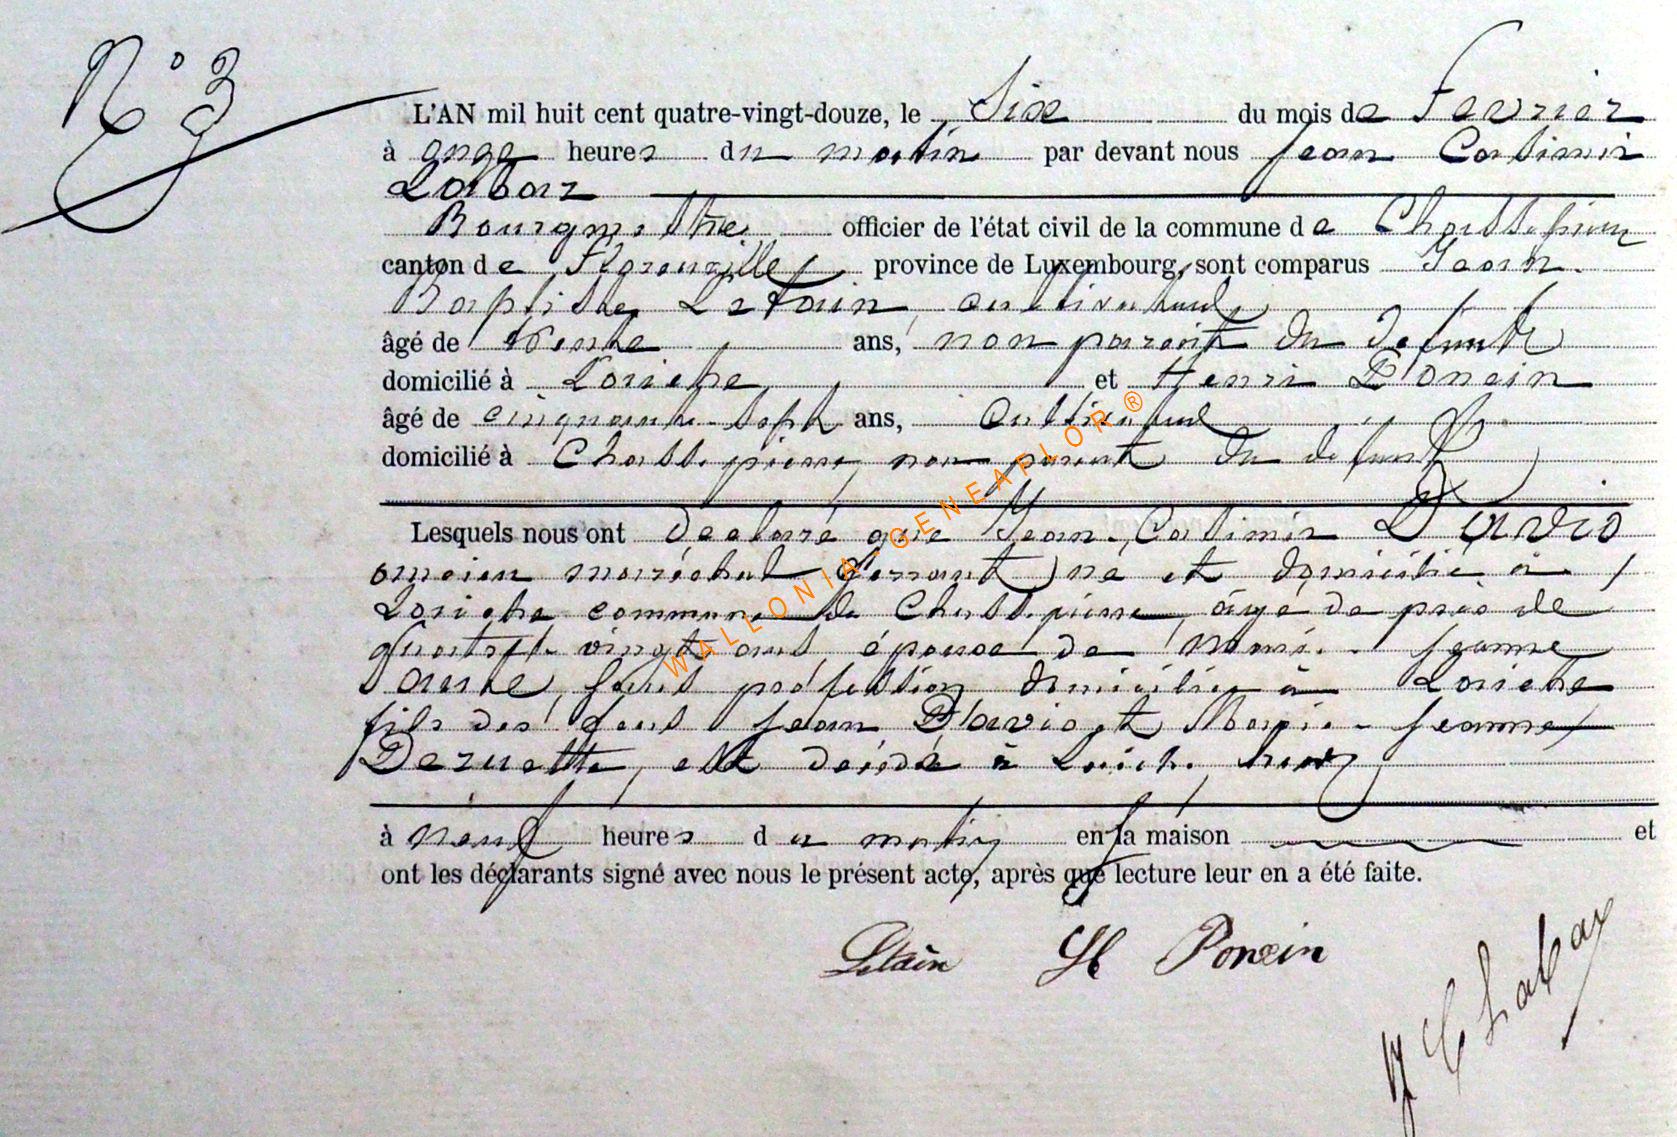 N° 3
L'AN mil huit cent quatre-vingt-douze, le Six du mois de Fevrier
à onze heures du matin par devant nous Jean Casimir
Labaz
Bourgmestre officier de l'état civil de la commune de Chassepierre
canton de Florenville, province de Luxembourg, sont comparus Jean
Baptiste Letain, cultivateur,
âgé de trente ans, non parent du defunt
domicilié à Laiche, et Henri Poncin
âgé de cinquante-sept ans, cultivateur
domicilié à Chassepierre, non parent du defunt
Lesquels nous ont déclaré que Jean Casimir David
ancien maréchal ferrant, né et domicilié à
Laiche commune de Chassepierre, âgé de près de
quatre-vingt ans, époux de Marie Jeanne
sans profession domiciliée à Laiche
fils des feus Jean David et Marie-Jeanne
Dezuette, est décédé à Laiche, hier
à neuf heures du matin en la maison et
ont les déclarants signé avec nous le présent acte, après que lecture leur en a été faite.
Letain H Poncin
J C Labaz
WALLONIA GENEAFLOR ®